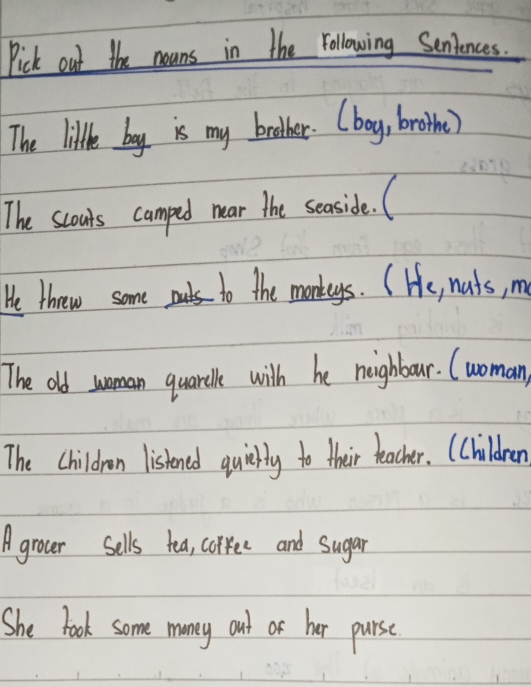 Pick out the nouns in the Following Sentences.
The little boy is my brother. (boy, brothe)
The scouts camped near the seaside. (
He threw some nuts to the monkeys. (He, nuts, mo
The old woman quarelle with he neighbour. (woman,
The children listened quietly to their teacher. (Children,
A grocer sells tea, coffee and sugar
She took some money out of her purse.